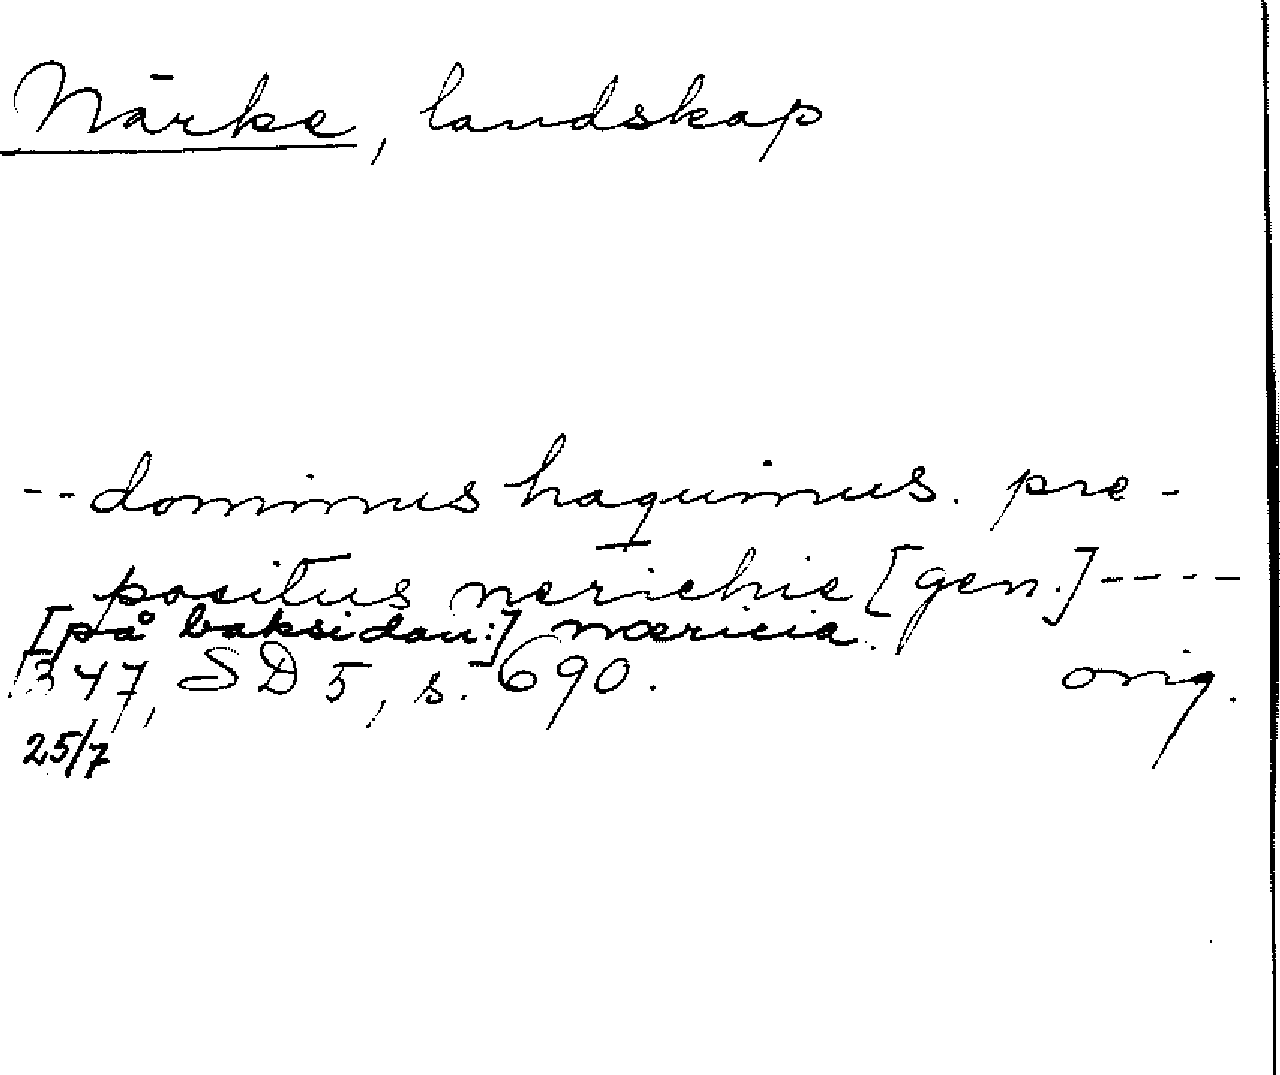 Närke, landskap
-- dominus haquinus. pre-
positus nerichie [gen.] ----
[på baksidan:] næricia.
1347, SD 5, s. 690. orig.
25/7